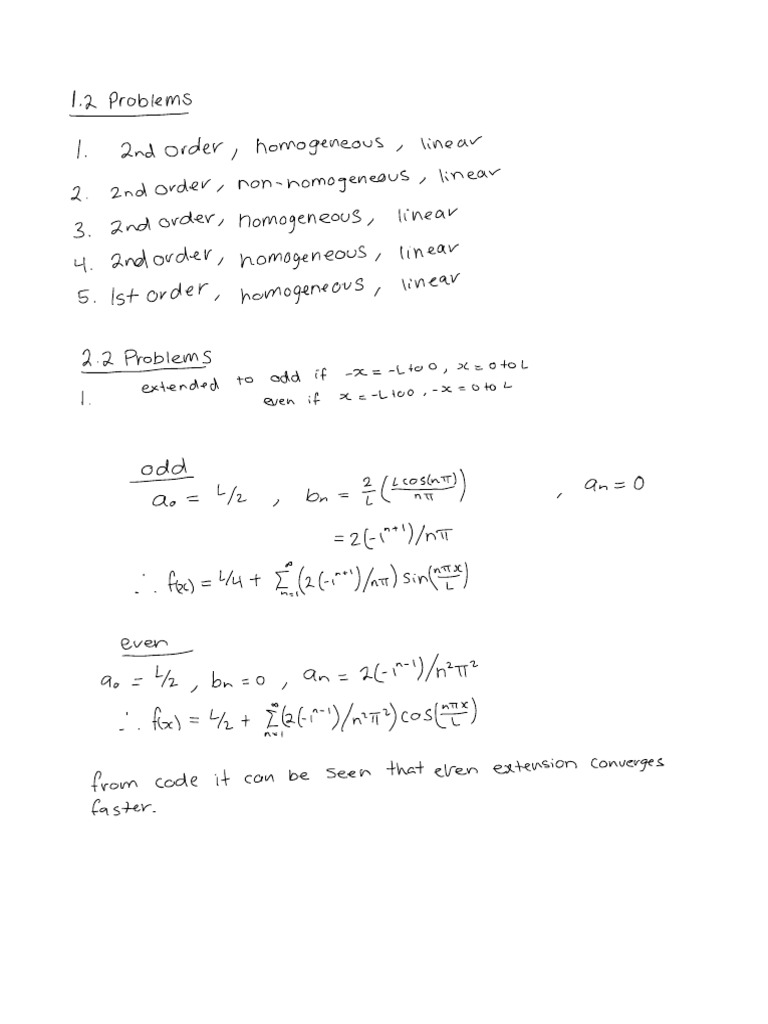 1.2 Problems
1. 2nd order, homogeneous, linear
2. 2nd order, non-homogeneous, linear
3. 2nd order, homogeneous, linear
4. 2nd order, homogeneous, linear
5. 1st order, homogeneous, linear
2.2 Problems
1. extended to odd if -x = -L to 0, x = 0 to L
even if x = -L to 0, -x = 0 to L
odd
a₀ = L/2 , bₙ = 2/L (L cos(nπ)/nπ) , aₙ = 0
= 2(-1ⁿ⁺¹)/nπ
∴ f(x) = L/4 + ∑ₙ₌₁^∞ (2(-1ⁿ⁺¹)/nπ) sin(nπx/L)
even
a₀ = L/2 , bₙ = 0 , aₙ = 2(-1ⁿ⁻¹)/n²π²
∴ f(x) = L/2 + ∑ₙ₌₁^∞ (2(-1ⁿ⁻¹)/n²π²) cos(nπx/L)
from code it can be seen that even extension converges
faster.